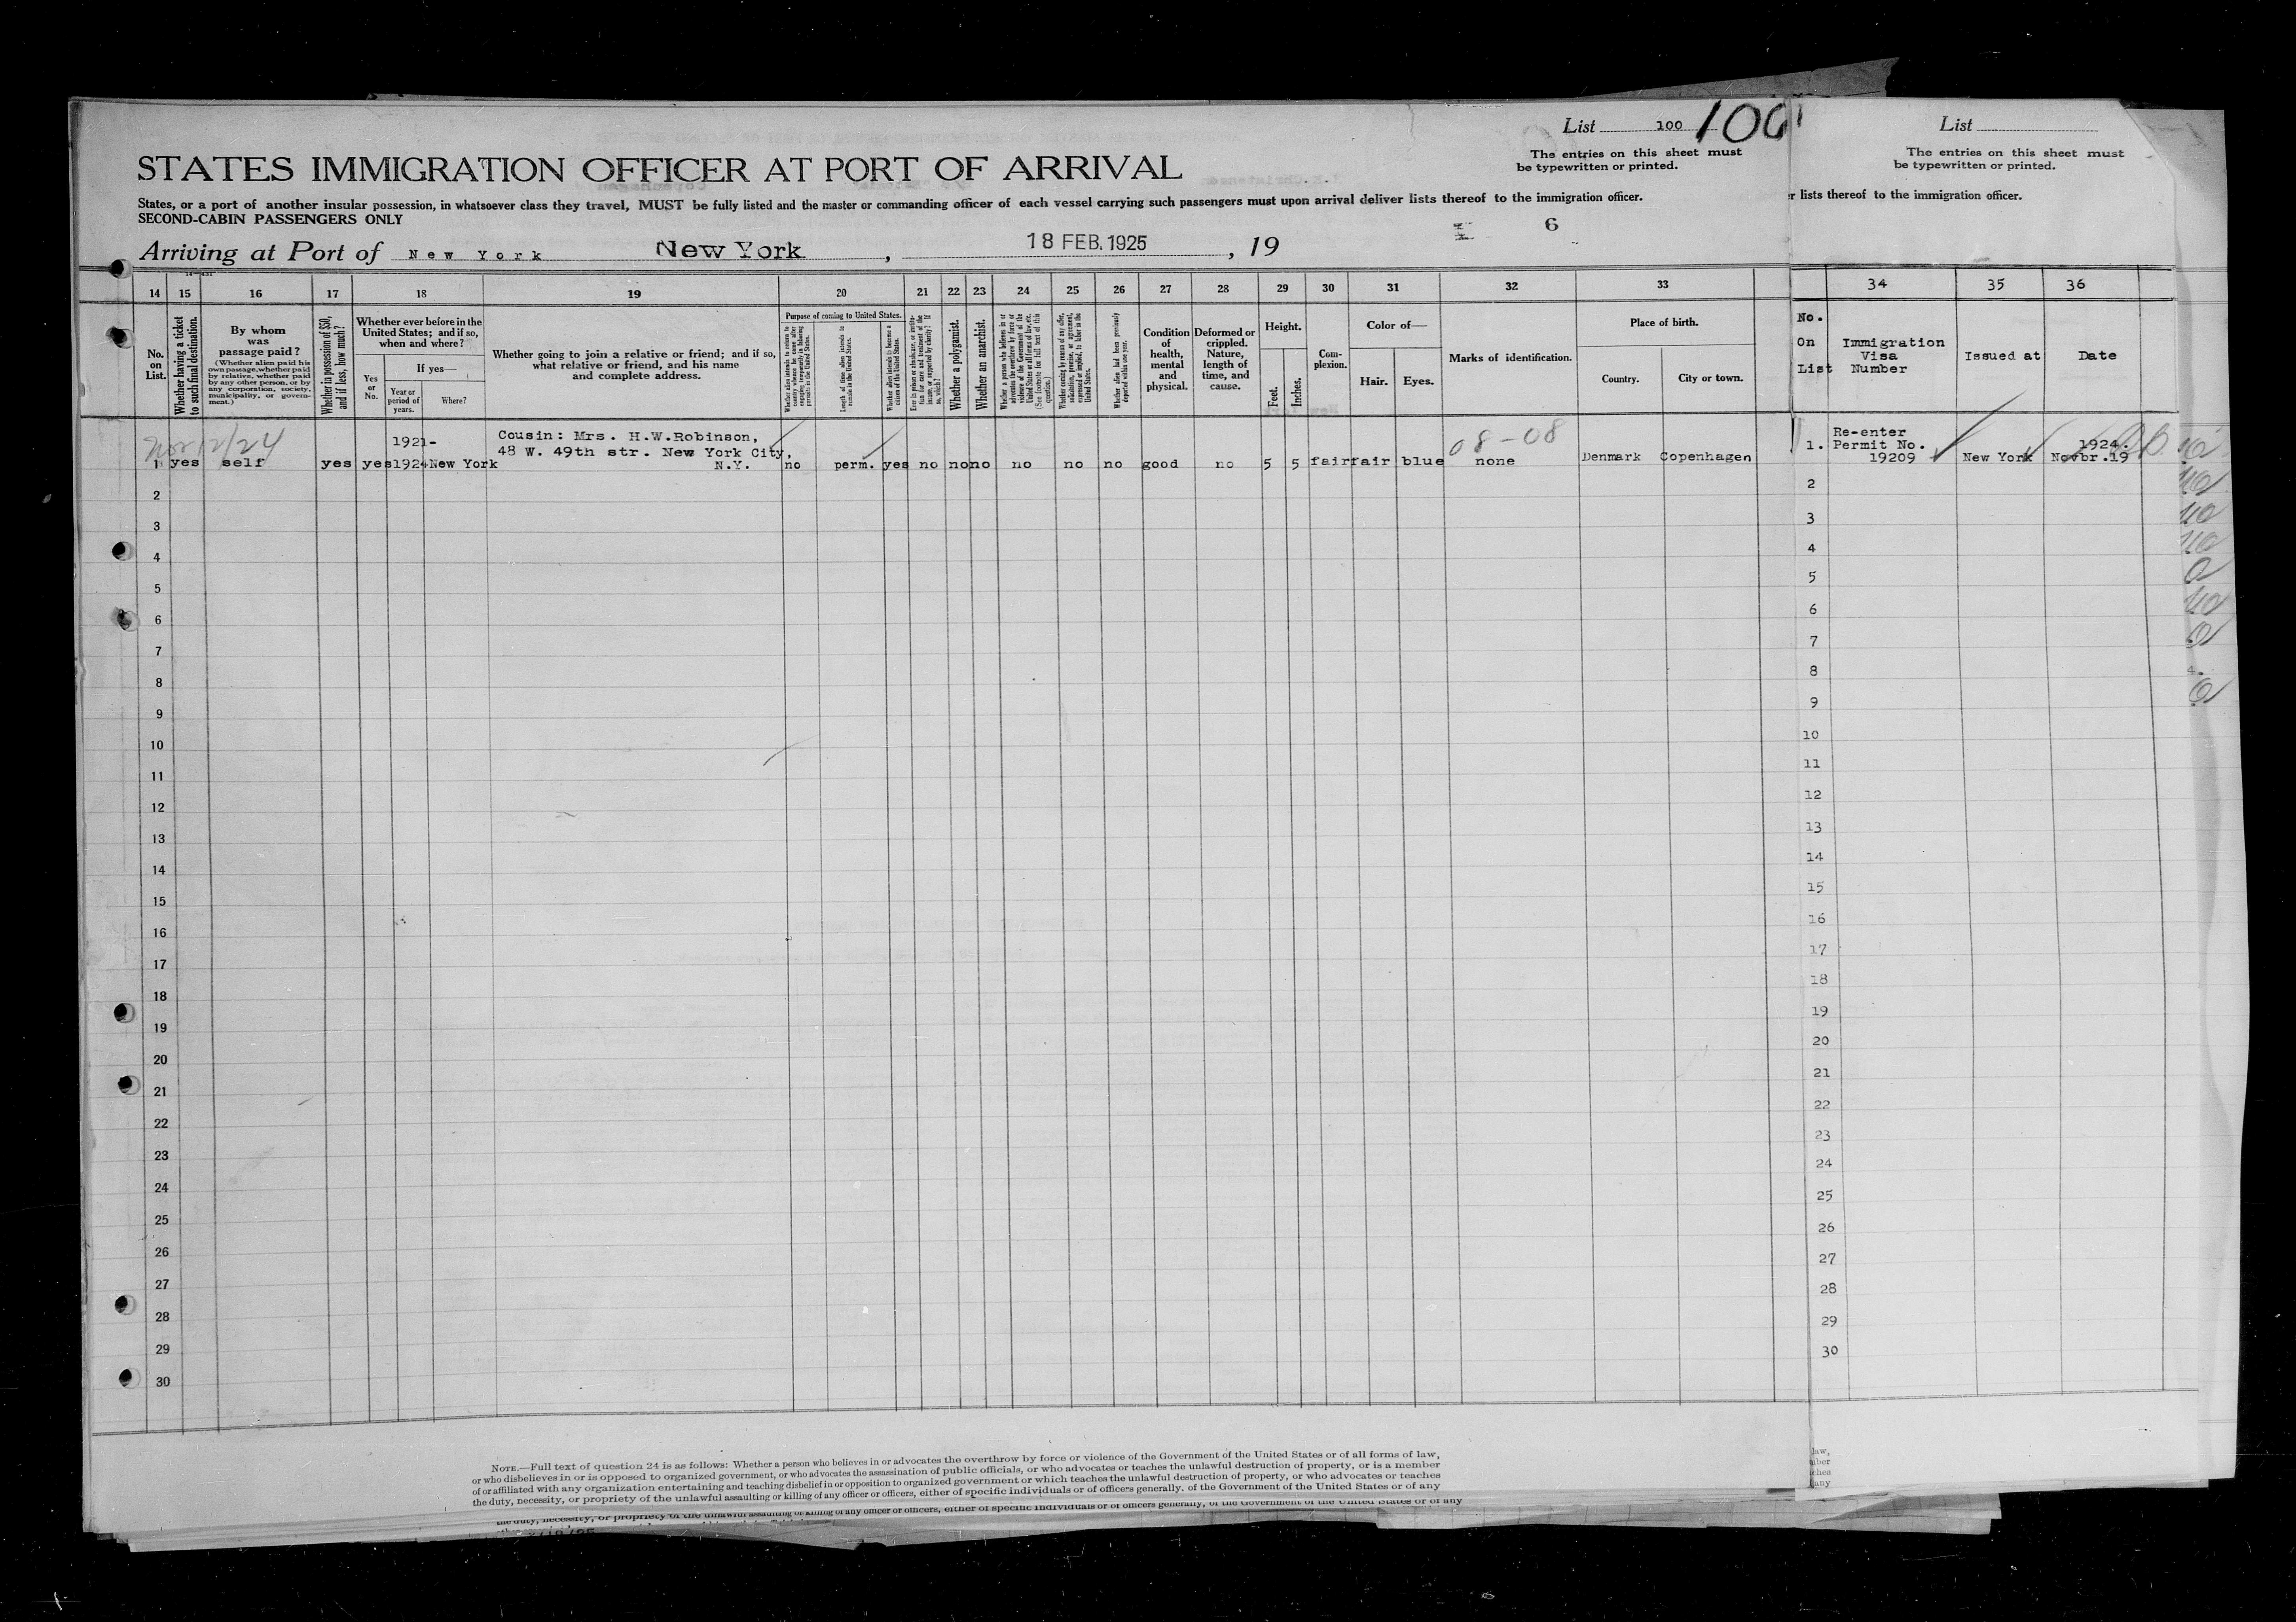 List 100 100
List
The entries on this sheet must
be typewritten or printed.
The entries on this sheet must
be typewritten or printed.
STATES IMMIGRATION OFFICER AT PORT OF ARRIVAL
States, or a port of another insular possession, in whatsoever class they travel, MUST be fully listed and the master or commanding officer of each vessel carrying such passengers must upon arrival deliver lists thereof to the immigration officer.
r lists thereof to the immigration officer.
SECOND-CABIN PASSENGERS ONLY
6
Arriving at Port of New York New York, 18 FEB. 1925, 19
14 15 16 17 18 19 20 21 22 23 24 25 26 27 28 29 30 31 32 33 34 35 36
No.
on
List.
Whether having a ticket
to such final destination.
By whom
was
passage paid?
(Whether alien paid his
own passage, whether paid
by relative, whether paid
by any other person, or by
any corporation, society,
municipality, or govern-
ment.)
Whether in possession of $50,
and if less, how much?
Whether ever before in the
United States; and if so,
when and where?
Yes
or
No.
If yes—
Year or
period of
years.
Where?
Whether going to join a relative or friend; and if so,
what relative or friend, and his name
and complete address.
Purpose of coming to United States.
Whether alien intends to return to
country whence he came after
engaging temporarily in laboring
pursuits in the United States.
Length of time alien intends to
remain in the United States.
Whether alien intends to become a
citizen of the United States.
Ever in prison or almshouse, or institu-
tion for care and treatment of the
insane, or supported by charity? If
so, which?
Whether a polygamist.
Whether an anarchist.
Whether a person who believes in or
advocates the overthrow by force or
violence of the Government of the
United States or all forms of law, etc.
(See footnote for full text of this
question.)
Whether coming by reason of any offer,
solicitation, promise, or agreement,
expressed or implied, to labor in the
United States.
Whether alien had been previously
deported within one year.
Condition
of
health,
mental
and
physical.
Deformed or
crippled.
Nature,
length of
time, and
cause.
Height.
Feet.
Inches.
Com-
plexion.
Color of—
Hair.
Eyes.
Marks of identification.
Place of birth.
Country.
City or town.
No.
On
List
Immigration
Visa
Number
Issued at
Date
08-08
1 yes self yes yes 1921-1924 New York
Cousin: Mrs. H.W.Robinson,
48 W. 49th str. New York City,
N.Y.
no perm. yes no no no no no no good no 5 5 fair fair blue none Denmark Copenhagen
1. Re-enter
Permit No.
19209
New York
1924.
Novbr.19
2 2
3 3
4 4
5 5
6 6
7 7
8 8
9 9
10 10
11 11
12 12
13 13
14 14
15 15
16 16
17 17
18 18
19 19
20 20
21 21
22 22
23 23
24 24
25 25
26 26
27 27
28 28
29 29
30 30
NOTE.—Full text of question 24 is as follows: Whether a person who believes in or advocates the overthrow by force or violence of the Government of the United States or of all forms of law,
or who disbelieves in or is opposed to organized government, or who advocates the assassination of public officials, or who advocates or teaches the unlawful destruction of property, or is a member
of or affiliated with any organization entertaining and teaching disbelief in or opposition to organized government or which teaches the unlawful destruction of property, or who advocates or teaches
the duty, necessity, or propriety of the unlawful assaulting or killing of any officer or officers, either of specific individuals or of officers generally, of the Government of the United States or of any
the duty, necessity, or propriety of the unlawful assaulting or killing of any officer or officers, either of specific individuals or of officers generally, of the Government of the United States or of any
law,
mber
ches
any